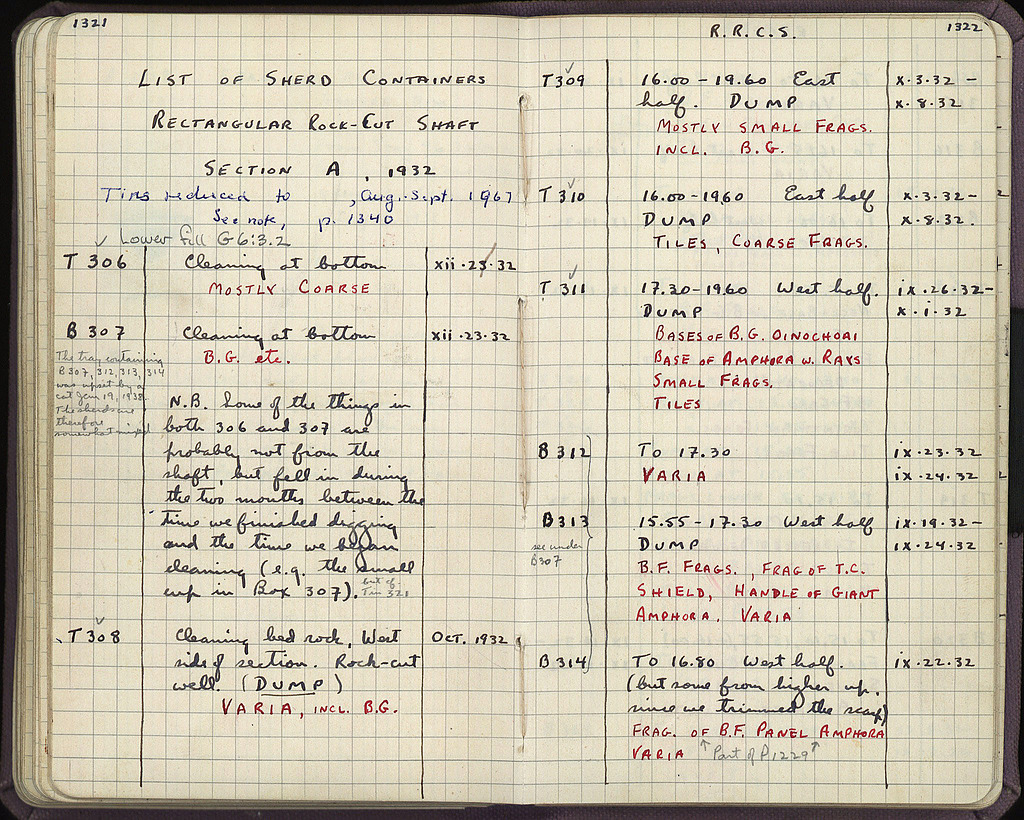 1321
LIST OF SHERD CONTAINERS
RECTANGULAR ROCK-CUT SHAFT
SECTION A, 1932
Tins reduced to , Aug.-Sept. 1967
See note, p. 1340
✓ Lower fill G6:3.2
T 306 Cleaning at bottom xii.23.32
MOSTLY COARSE
B 307 Cleaning at bottom xii.23.32
B.G. etc.
The tray containing
B 307, 312, 313, 314
was upset by a
cat Jan 19, 1938
The sherds are
therefore
somewhat mixed
N.B. Some of the things in
both 306 and 307 are
probably not from the
shaft, but fell in during
the two months between the
time we finished digging
and the time we began
cleaning (e.g. the small
cup in Box 307). but cf
Tin 321
✓
T 308 Cleaning bed rock, West OCT. 1932
side of section. Rock-cut
well. (DUMP)
VARIA, INCL. B.G.
R.R.C.S. 1322
✓
T 309 16.00 – 19.60 East x.3.32 –
half. DUMP x.8.32
MOSTLY SMALL FRAGS.
INCL. B.G.
✓
T 310 16.00–19.60 East half x.3.32–
DUMP x.8.32.
TILES, COARSE FRAGS.
✓
T 311 17.30–19.60 West half. ix.26.32–
DUMP x.i.32
BASES OF B.G. OINOCHOAI
BASE OF AMPHORA W. RAYS
SMALL FRAGS.
TILES
B 312 To 17.30 ix.23.32
VARIA ix.24.32
B 313 15.55 – 17.30 West half ix.19.32–
see under DUMP ix.24.32
B307
B.F. FRAGS., FRAG OF T.C.
SHIELD, HANDLE OF GIANT
AMPHORA. VARIA
B 314 To 16.80 West half. ix.22.32
(but some from higher up,
since we trimmed the scarp)
FRAG. OF B.F. PANEL AMPHORA
VARIA ↑ Part of P1229 ↑